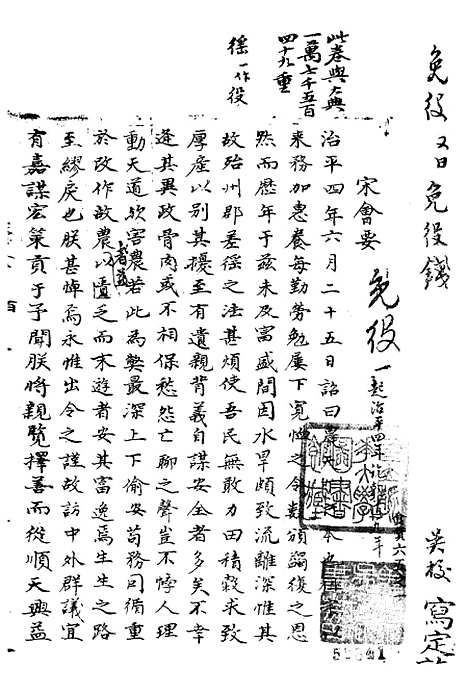 免役 又曰免役錢
吳校 寫定
宋會要
免役
一起治平四年訖
治平四年六月二十五日詔曰農
來務加惠養每勤勞勉屢下寬恤之令數頒蠲復之恩
然而歷年于茲未及富盛間因水旱頗致流離深惟其
故殆州郡差徭之法甚煩使吾民無敢力田積穀求致
厚產以別其擾至有遺親背義自謀安全者多矣不幸
逢其異政骨肉或不相保愁怨亡聊之聲豈不悖人理
動天道欤害農若此為獘最深上下偷安苟務因循重
於改作故農以匱乏而末遊者安其富逸焉生生之路
至繆戾也朕甚悼焉永惟出令之謹故訪中外群議宜
有嘉謀宏策貢于予聞朕將親覽擇善而從順天興益
此卷與大典
一萬七千五百
四十九重
徭一作役